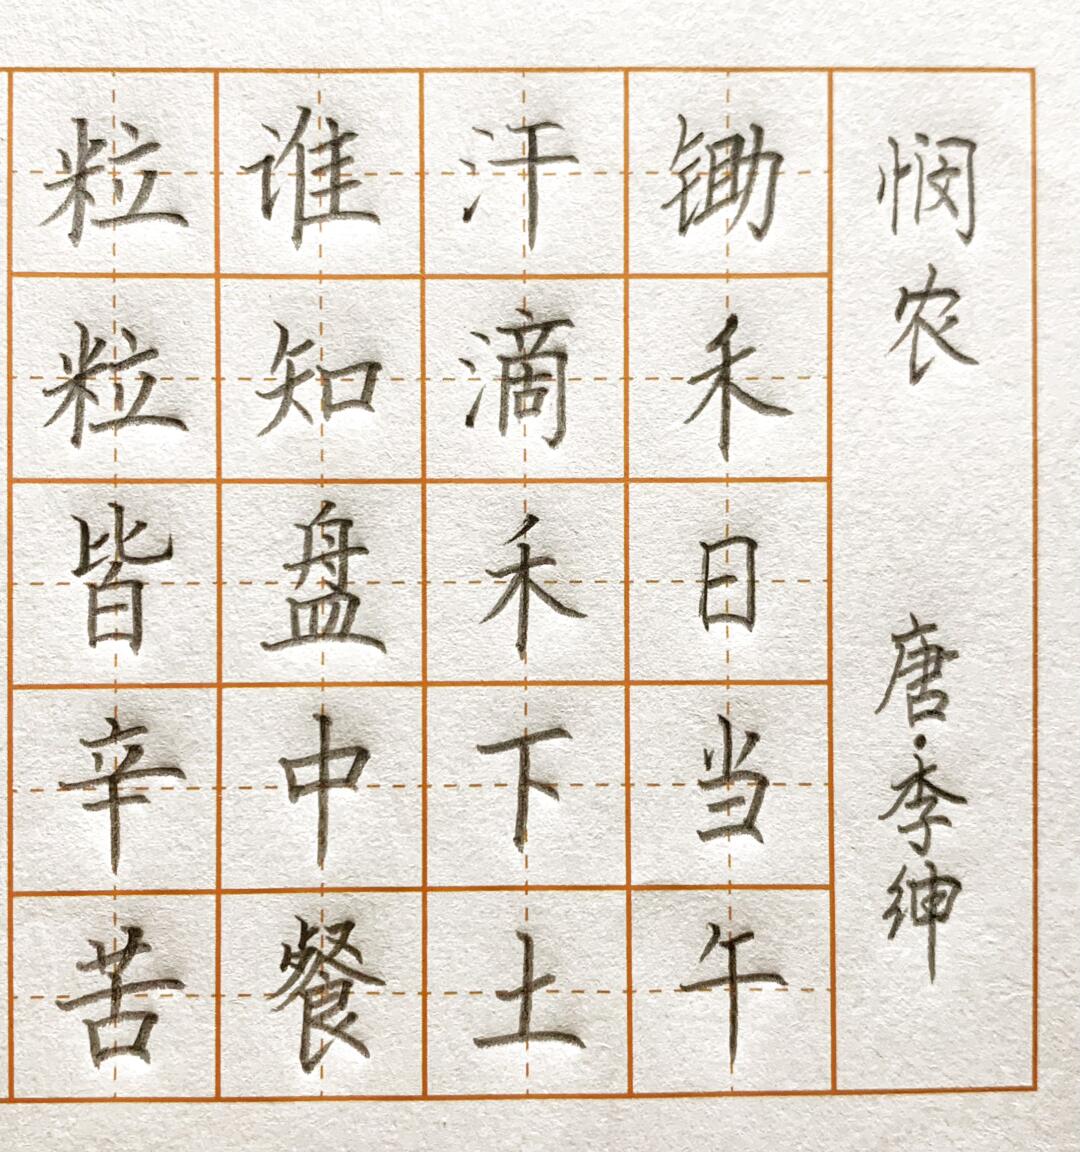 悯农 唐·李绅
锄禾日当午
汗滴禾下土
谁知盘中餐
粒粒皆辛苦